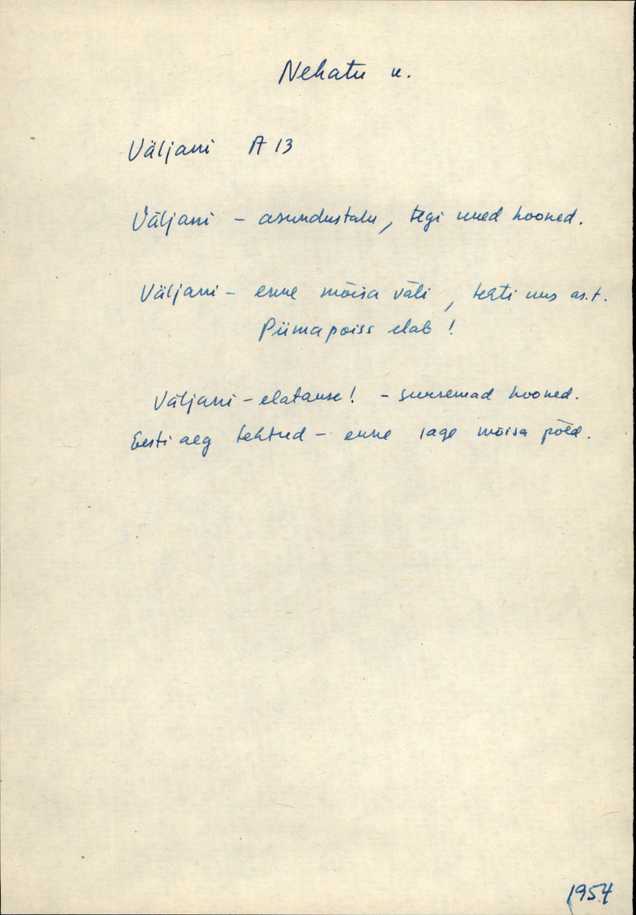 Nehatu k.
Väljani A 13
Väljani – asundustalu, tegi uued hooned.
Väljani – enne mõisa väli, tehti uus as.t.
Piimapoiss elab!
Väljani – elatanse! – suuremad hooned.
Eesti aeg tehtud – enne lage mõisa põld.
1954